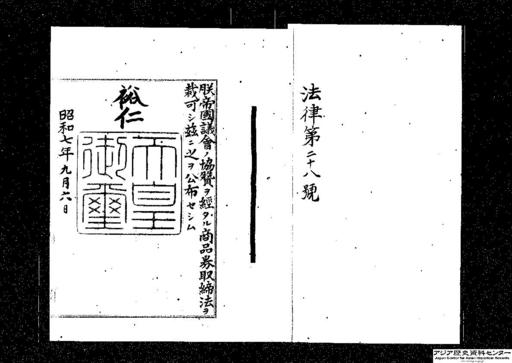 法律第二十八號
朕帝國議會ノ協贊ヲ經タル商品券取締法ヲ
裁可シ茲ニ之ヲ公布セシム
裕仁
天皇御璽
昭和七年九月六日
アジア歴史資料センター
Japan Center for Asian Historical Records